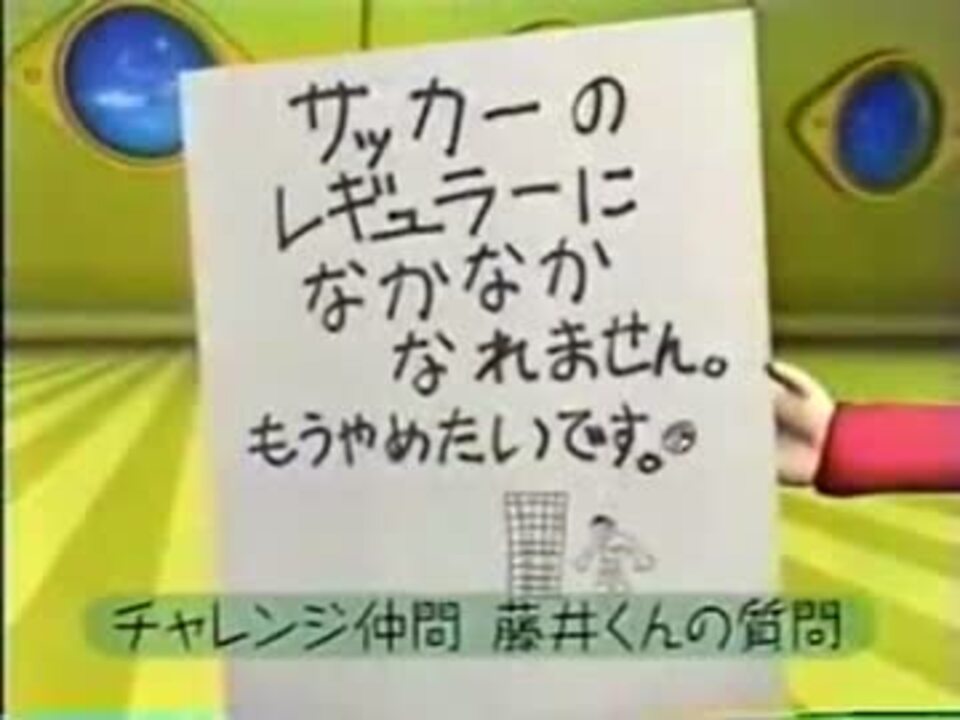 サッカーの
レギュラーに
なかなか
なれません。
もうやめたいです。
チャレンジ仲間 藤井くんの質問